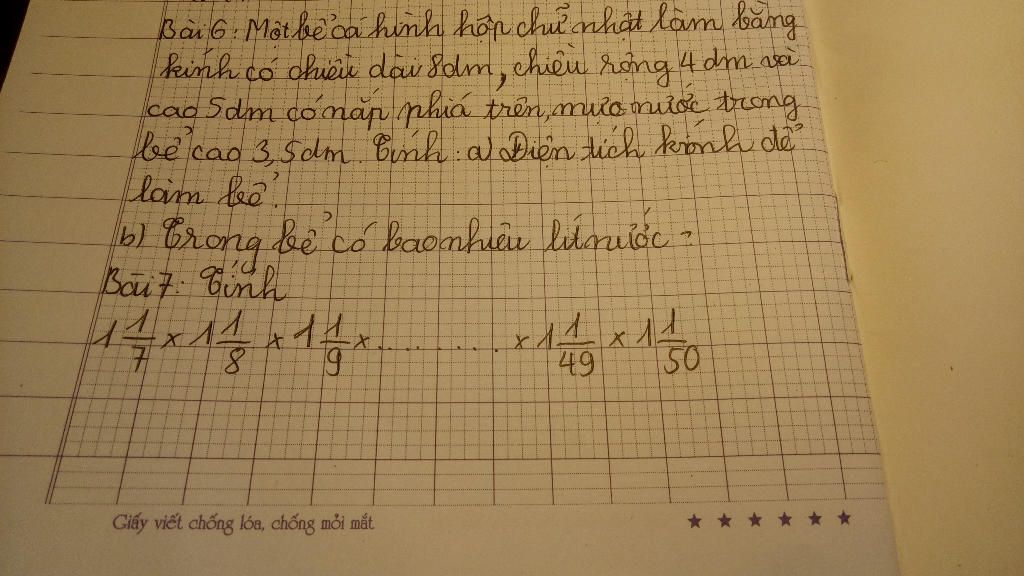 Bài 6: Một bể cá hình hộp chữ nhật làm bằng
kính có chiều dài 8dm, chiều rộng 4 dm và
cao 5dm có nắp phiá trên, mực nước trong
bể cao 3,5dm. Tính: a) Diện tích kính để
làm bể.
b) Trong bể có bao nhiêu lít nước?
Bài 7: Tính
1 1/7 x 1 1/8 x 1 1/9 x.......... x 1 1/49 x 1 1/50
Giấy viết chống lóa, chống mỏi mắt
★ ★ ★ ★ ★ ★